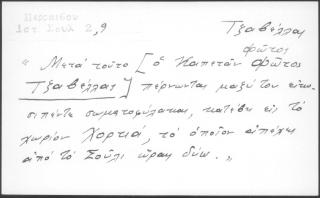 Περραιβού
Ἱστ. Σουλ. 2,9
Τζαβέλλας
Φῶτος
" Μετὰ τοῦτο [ ὁ Καπετὰν Φῶτος
Τζαβέλλας ] πέρνωντας μαζύ του εἰκο-
σιπέντε σωματοφύλακας, κατέβη εἰς τὸ
χωρίον Χορτιά, τὸ ὁποῖον ἀπέχει
ἀπὸ τὸ Σοῦλι ὥρας δύω. „